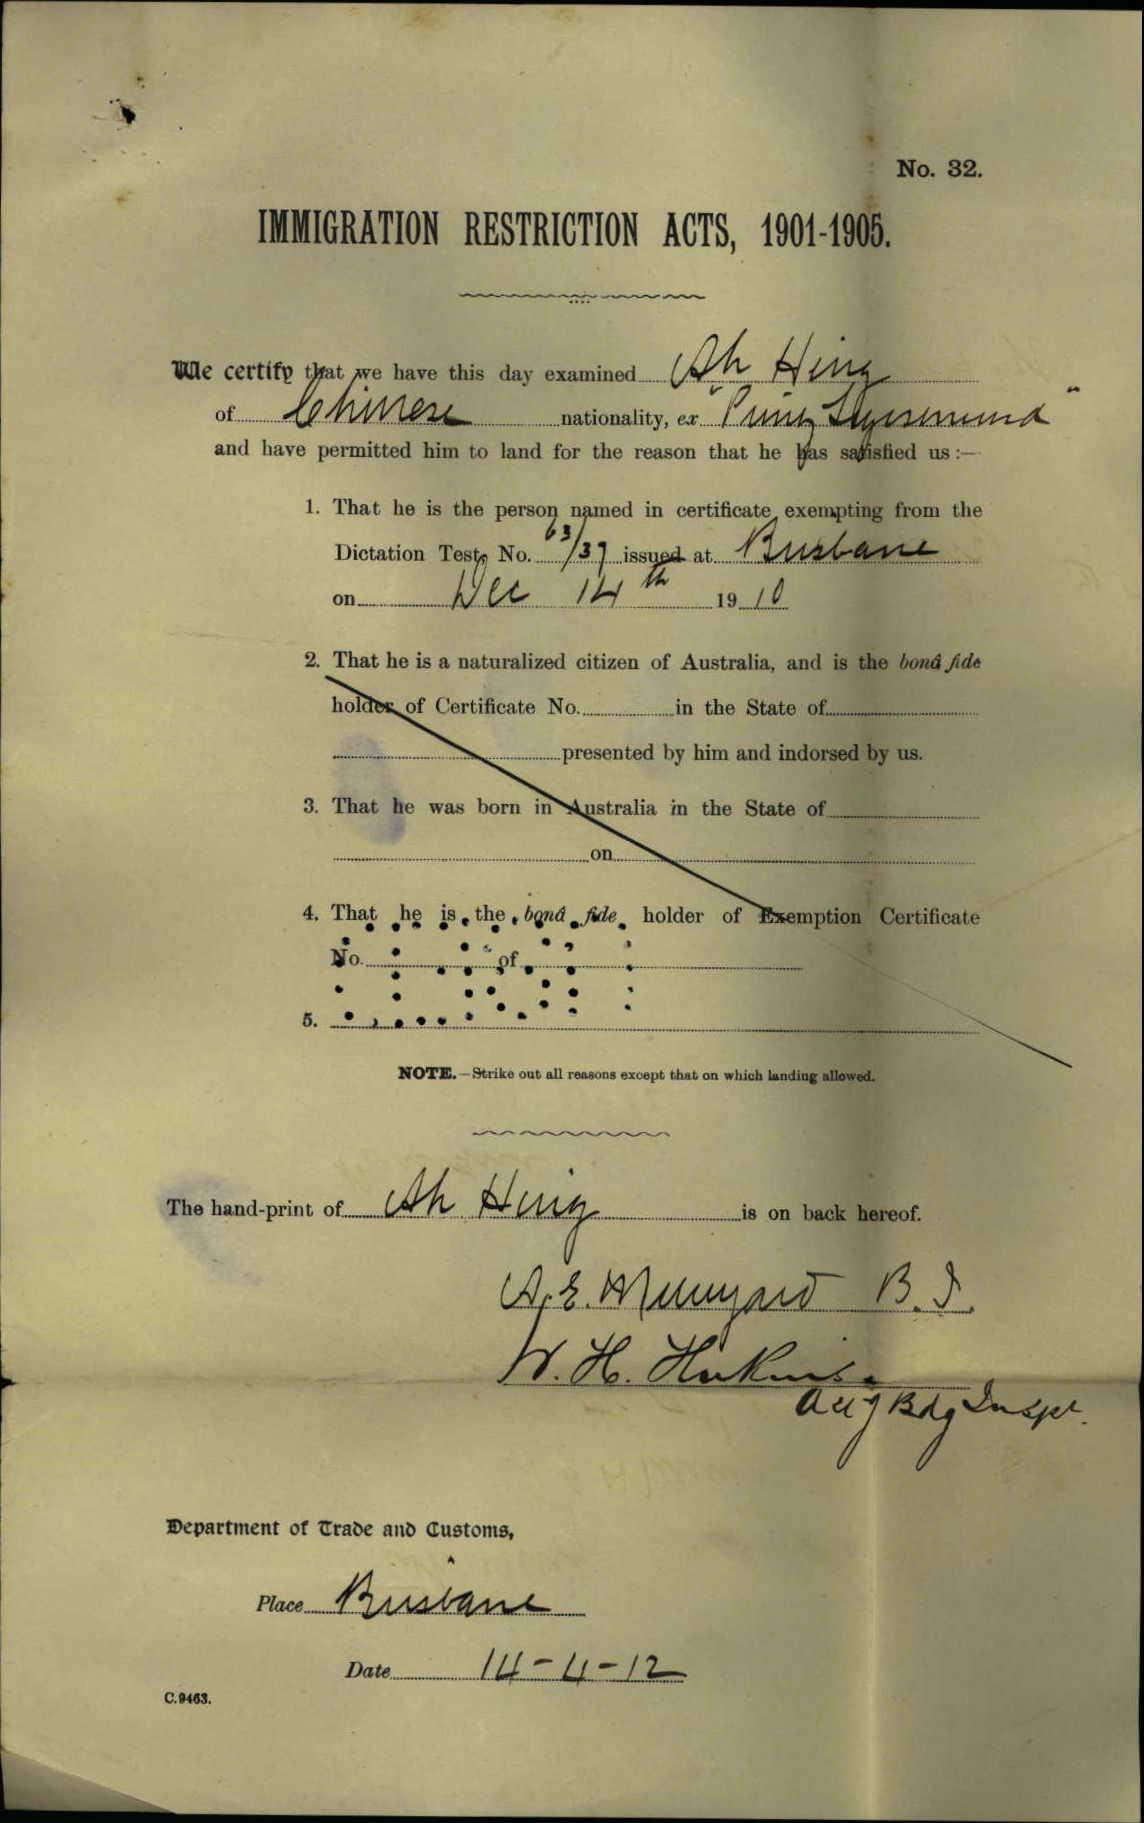 No. 32.
IMMIGRATION RESTRICTION ACTS, 1901-1905.
We certify that we have this day examined Ah Hing
of Chinese nationality, ex "Prinz Sigismund"
and have permitted him to land for the reason that he has satisfied us :—
1. That he is the person named in certificate exempting from the
Dictation Test, No. 63/39 issued at Brisbane
on Dec 14th 1910
2. That he is a naturalized citizen of Australia, and is the bonâ fide
holder of Certificate No. in the State of
presented by him and indorsed by us.
3. That he was born in Australia in the State of
on
4. That he is the bonâ fide holder of Exemption Certificate
No. of
5.
NOTE.—Strike out all reasons except that on which landing allowed.
The hand-print of Ah Hing is on back hereof.
A. E. B. I.
W. H.
Actg Bdg Inspr.
Department of Trade and Customs,
Place Brisbane
Date 14-4-12
C.9463.